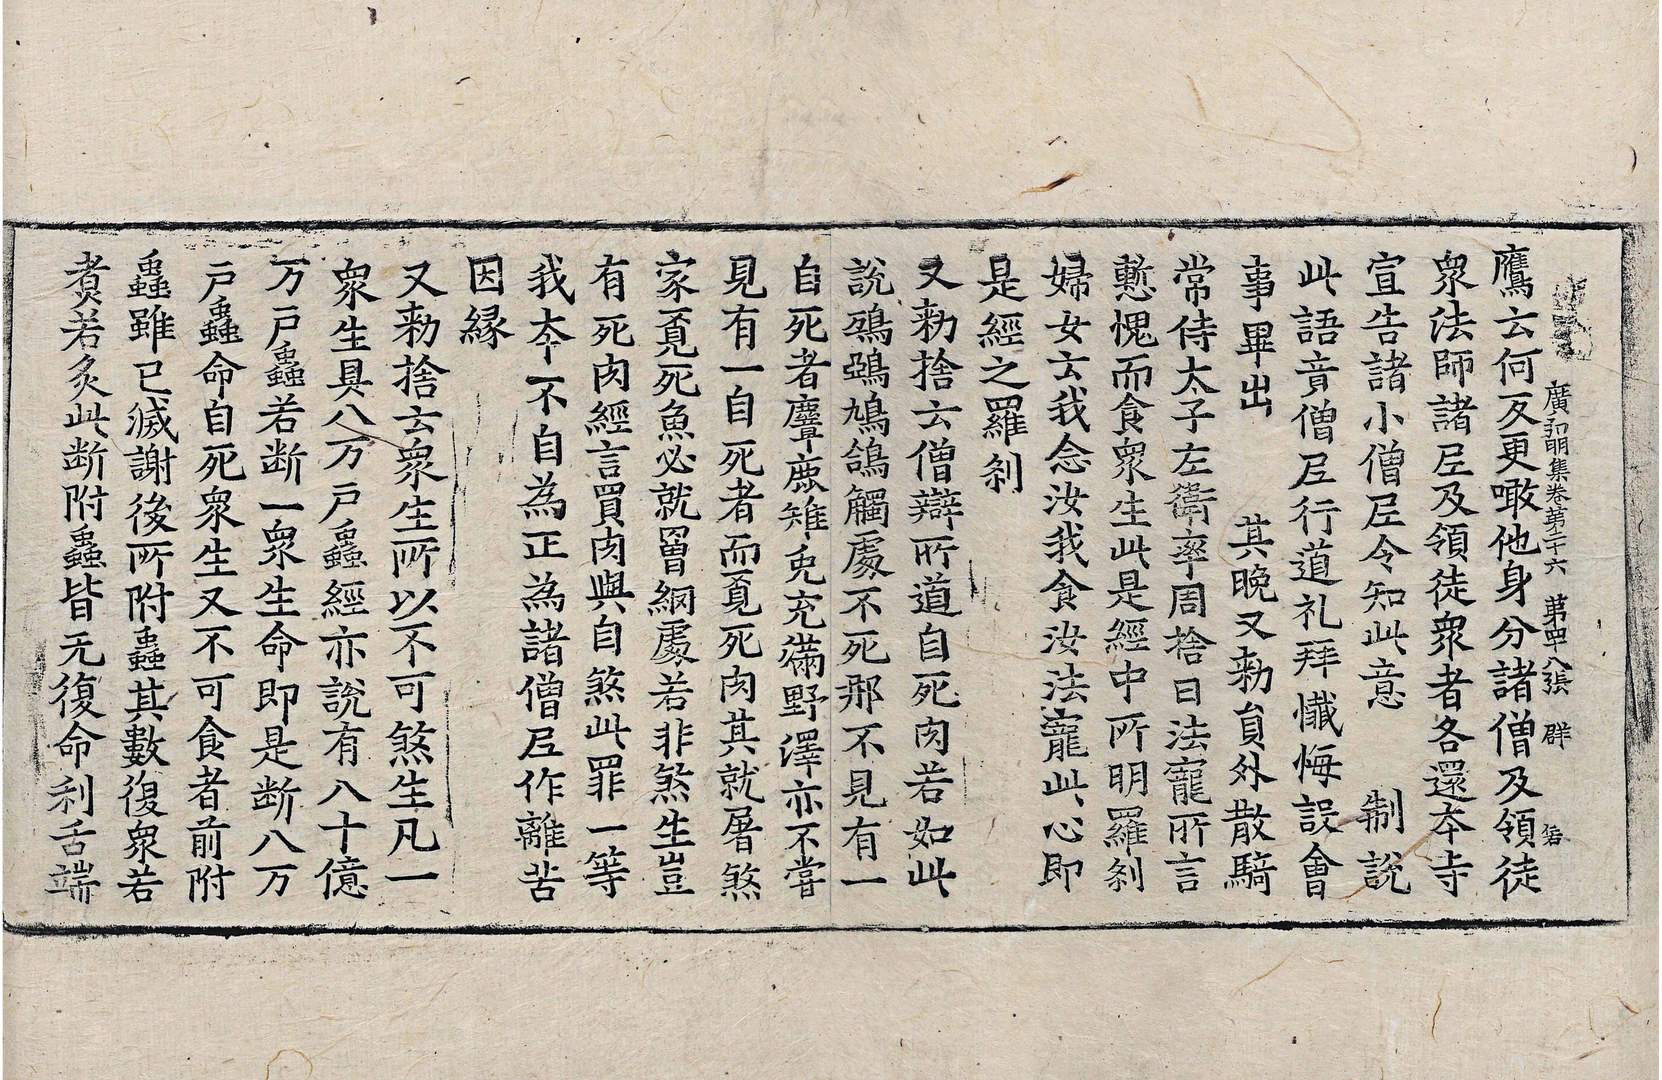 廣弘明集卷第二十六 第四十八張 群
鷹云何反更噉他身分諸僧及領徒
衆法師諸尼及領徒衆者各還本寺
宣告諸小僧尼令知此意 制說
此語音僧尼行道礼拜懺悔設會
事畢出 其晚又勑負外散騎
常侍太子左衛率周捨曰法寵所言
慙愧而食衆生此是經中所明羅剎
婦女云我念汝我食汝法寵此心即
是經之羅剎
又勑捨云僧辯所道自死肉若如此
說鵄鵶鳩鴿觸處不死那不見有一
自死者麞鹿雉兎充滿野澤亦不嘗
見有一自死者而覓死肉其就屠煞
家覓死魚必就罾網處若非煞生豈
有死肉經言買肉與自煞此罪一等
我本不自為正為諸僧尼作離苦
因緣
又勑捨云衆生所以不可煞生凡一
衆生具八万戶蟲經亦說有八十億
万戶蟲若断一衆生命即是断八万
戶蟲命自死衆生又不可食者前附
蟲雖已滅謝後所附蟲其數復衆若
煮若炙此断附蟲皆无復命利舌端